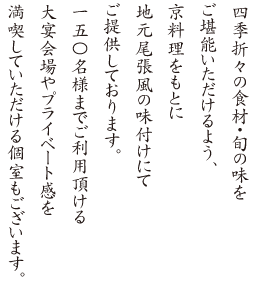 四季折々の食材・旬の味を
ご堪能いただけるよう、
京料理をもとに
地元尾張風の味付けにて
ご提供しております。
一五〇名様までご利用頂ける
大宴会場やプライベート感を
満喫していただける個室もございます。